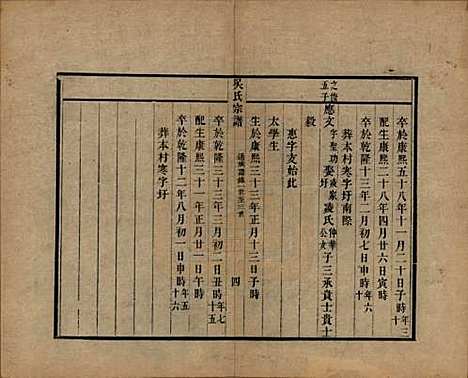 卒於康熙五十八年十一月二十日子時年三十
配生康熙二十八年四月廿六日寅時
卒於乾隆十三年二月初七日申時年六十
葬本村寒字圩南際
之後五子應文字聖功娶圩浚家凌氏仲華公女子三承貴士貴士
毅
惠字支始此
太學生
生於康熙三十三年正月十三日子時
吳氏宗譜
四
卒於乾隆三十三年三月初二日丑時年七十五
配生康熙三十一年正月廿一日午時
卒於乾隆十二年八月初一日申時年五十六
葬本村寒字圩